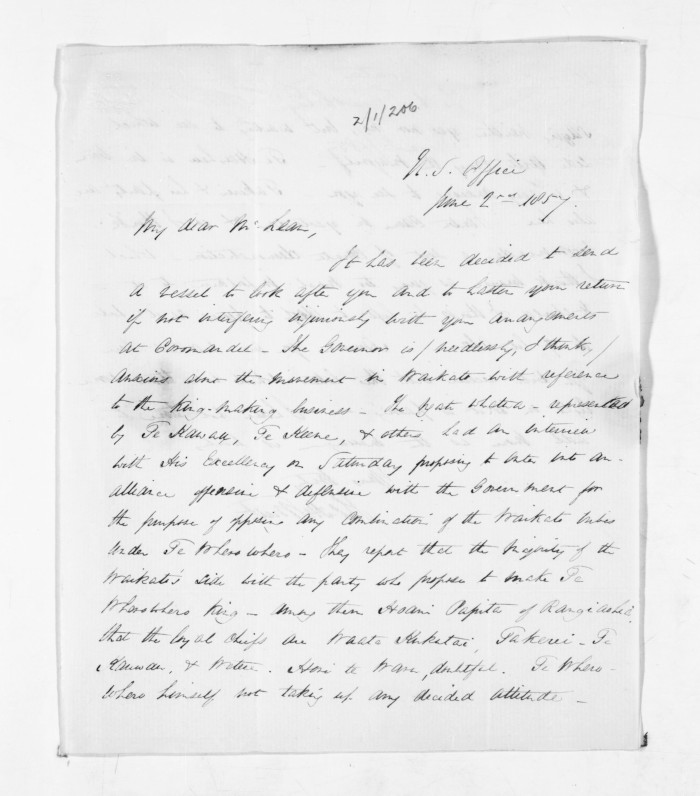 2/1/206
N. S. Office
June 2nd 1857.
My dear McLean,
It has been decided to send
a vessel to look after you and to hasten your return
if not interfering injuriously with your arrangements
at Coromandel - The Governor is /needlessly, I think,/
anxious about the movement in Waikato with reference
to the King-making business - The Ngati Whatua - represented
by Te Kawau, Te Keene, & others had an interview
with His Excellency on Saturday proposing to enter into an
alliance offensive & defensive with the Government for
the purpose of opposing any combination of the Waikato tribes
under Te Wherowhero - They report that the majority of the
Waikato's side with the party who propose to make Te
Wherowhero King - among them Hoani Papita of Rangiaohia,
that the loyal chiefs are Waata Kukutai, Takerei - Te
Rauwau, & Wetere. Hori te Waru, doubtful. Te Whero-
whero himself not taking up any decided attitude -